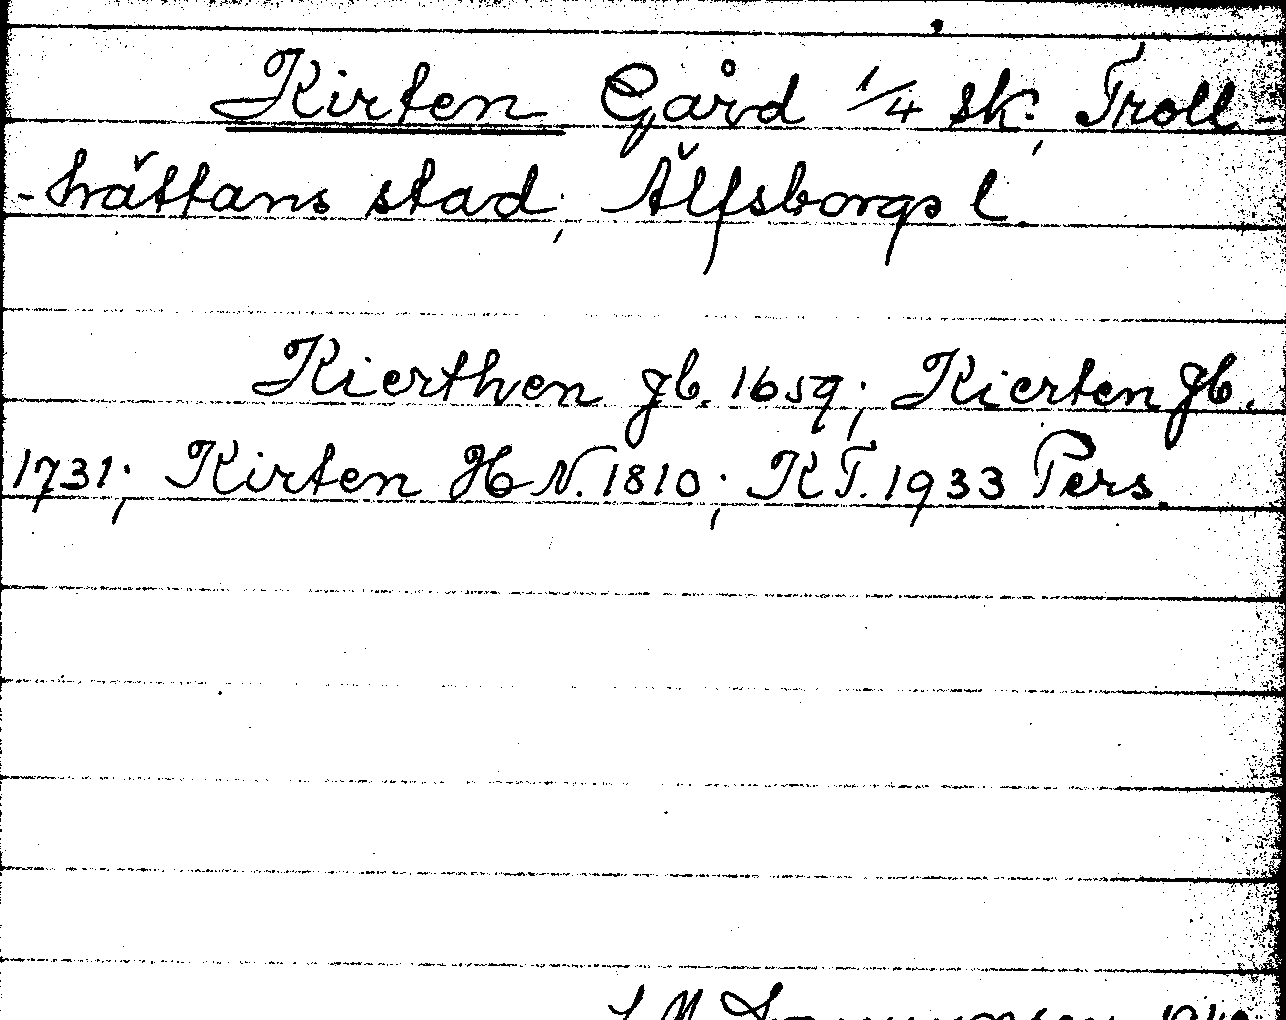 Kirten Gård 1/4 sk; Troll-
-hättans stad; Älfsborgs l.
Kierthen Jb. 1659; Kierten Jb.
1731; Kirten H N. 1810; K T. 1933 Pers.